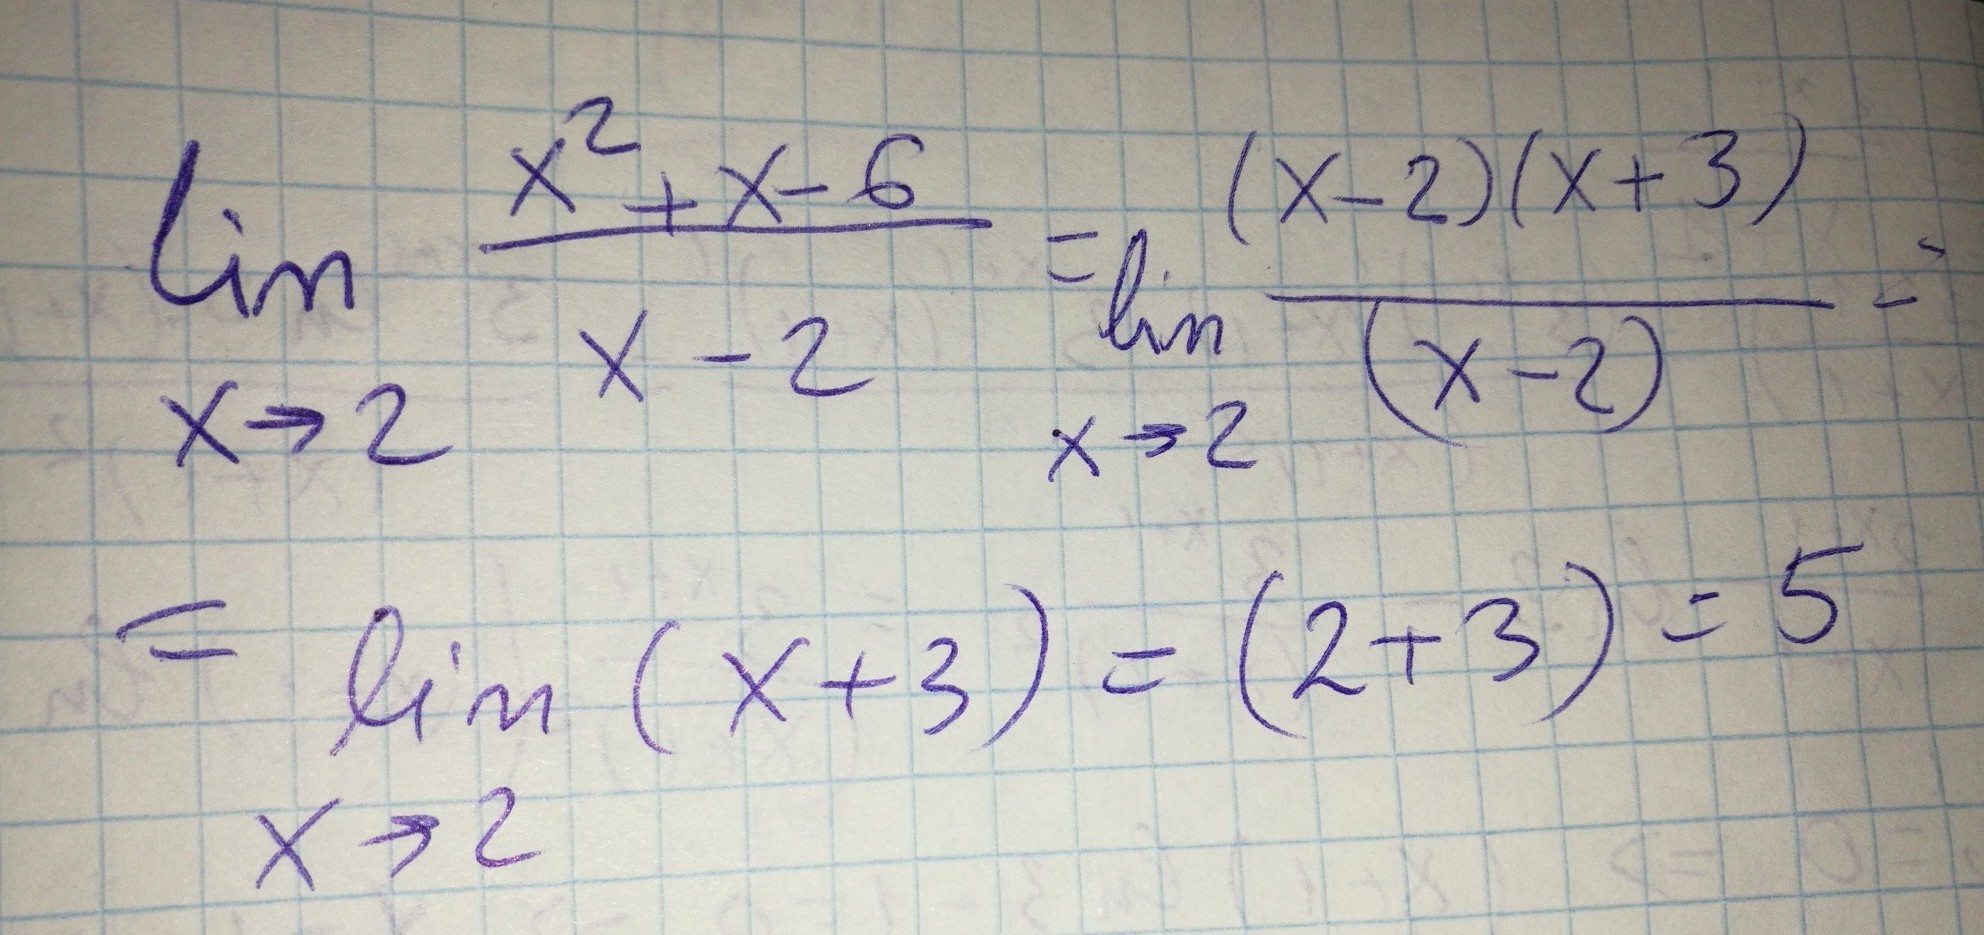 lim x→2 (x² + x - 6)/(x - 2) = lim x→2 ((x-2)(x+3))/((x-2)) =
= lim x→2 (x+3) = (2+3) = 5